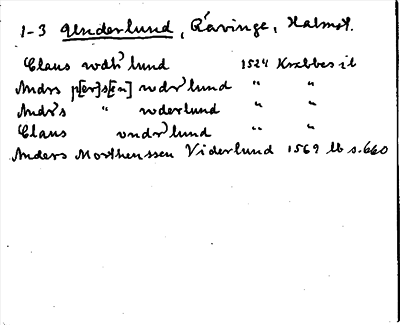 1-3 Underlund, Rävinge, Halmst.
Claus wdh' lund 1524 Krabbes jb
Andrs p[er]s[en] wdr' lund " "
Andr's " wderlund " "
Claus vndr' lund " "
Anders Morthenssen Viderlund 1569 lb s. 660